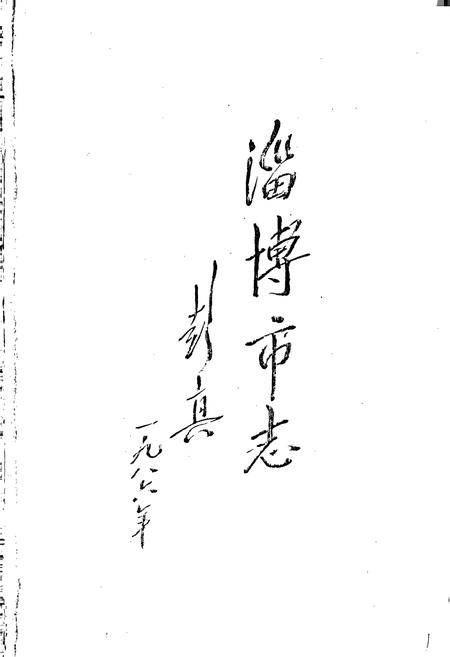 淄博市志
彭真
一九八六年